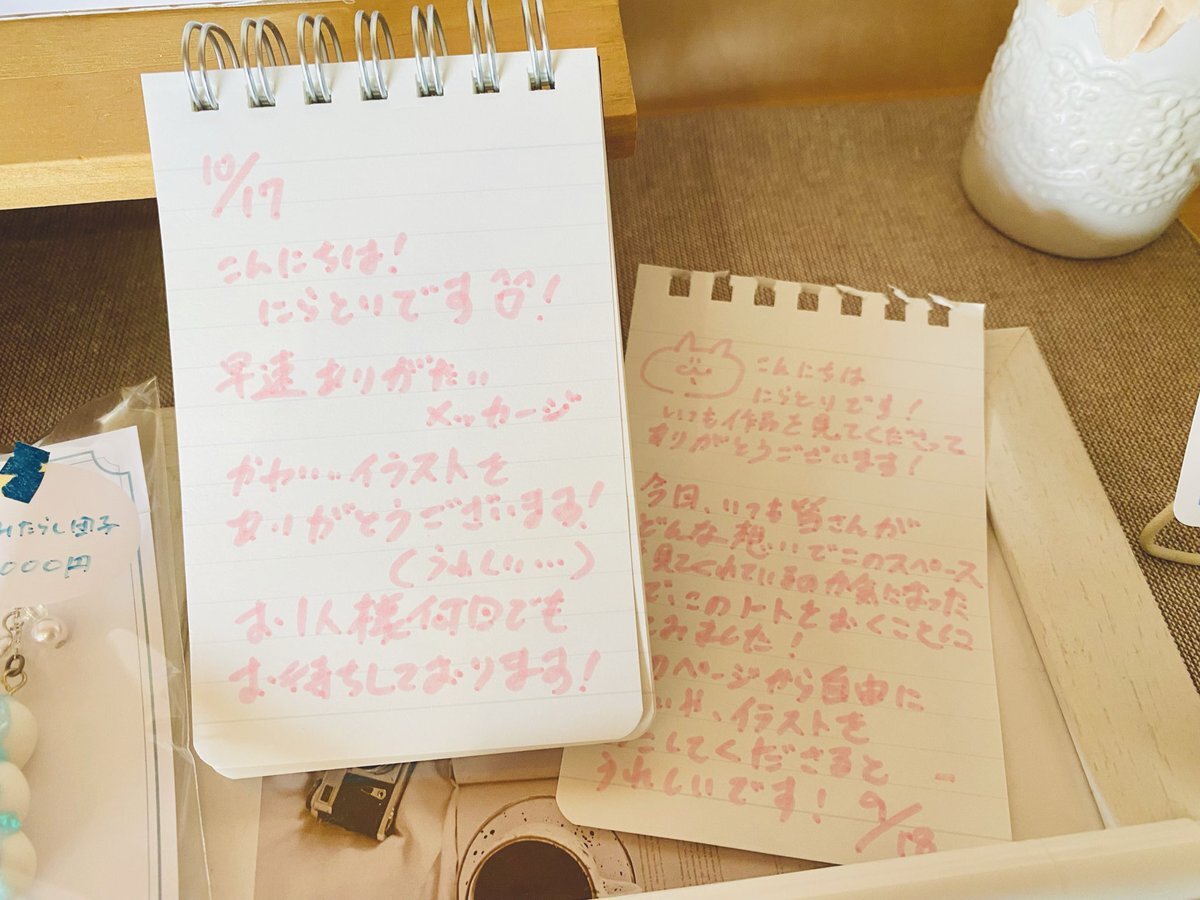 10/17
こんにちは!
にらとりです!
早速ありがたい
メッセージ
かわいいイラストを
ありがとうございまする!
(うれしい…)
お1人様何回でも
お待ちしております!
こんにちは
にらとりです!
いつも作品を見てくださって
ありがとうございます!
今日、いつも皆さんが
どんな想いでこのスペース
見てくれているのか気になった
で、このノートをおくことに
みました!
のページから自由に
や、イラストを
してくださると
うれしいです!
9/18
みたらし団子
000円